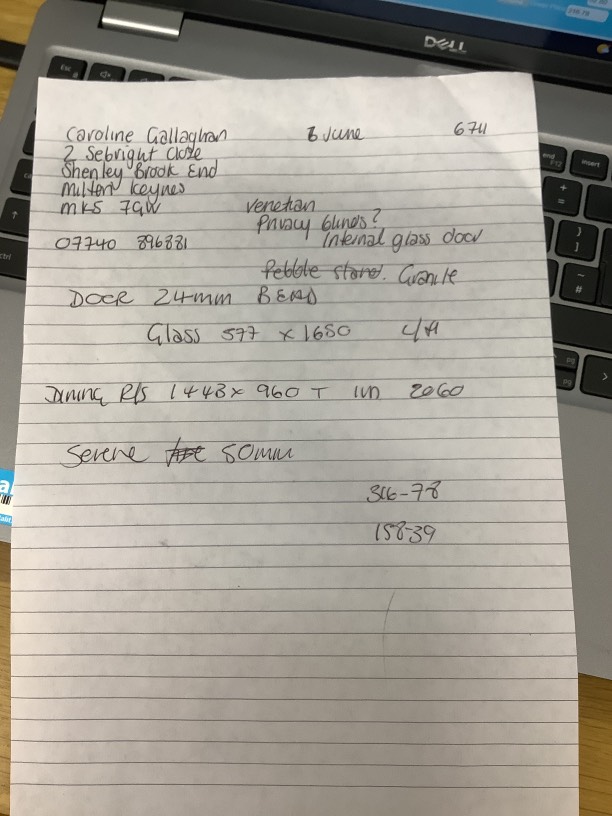 DELL
Caroline Gallaghan 6 June 6711
2 Sebright Close
Shenley Brook End
Milton Keynes
MK5 7GW Venetian
Privacy blinds?
07740 896881 Internal glass door
Pebble stone. Granite
DOOR 24mm BEAD
Glass 577 x 1650 C/H
Dining R/S 1443 x 960 T 2060
Serene 50mm
316-78
158-39